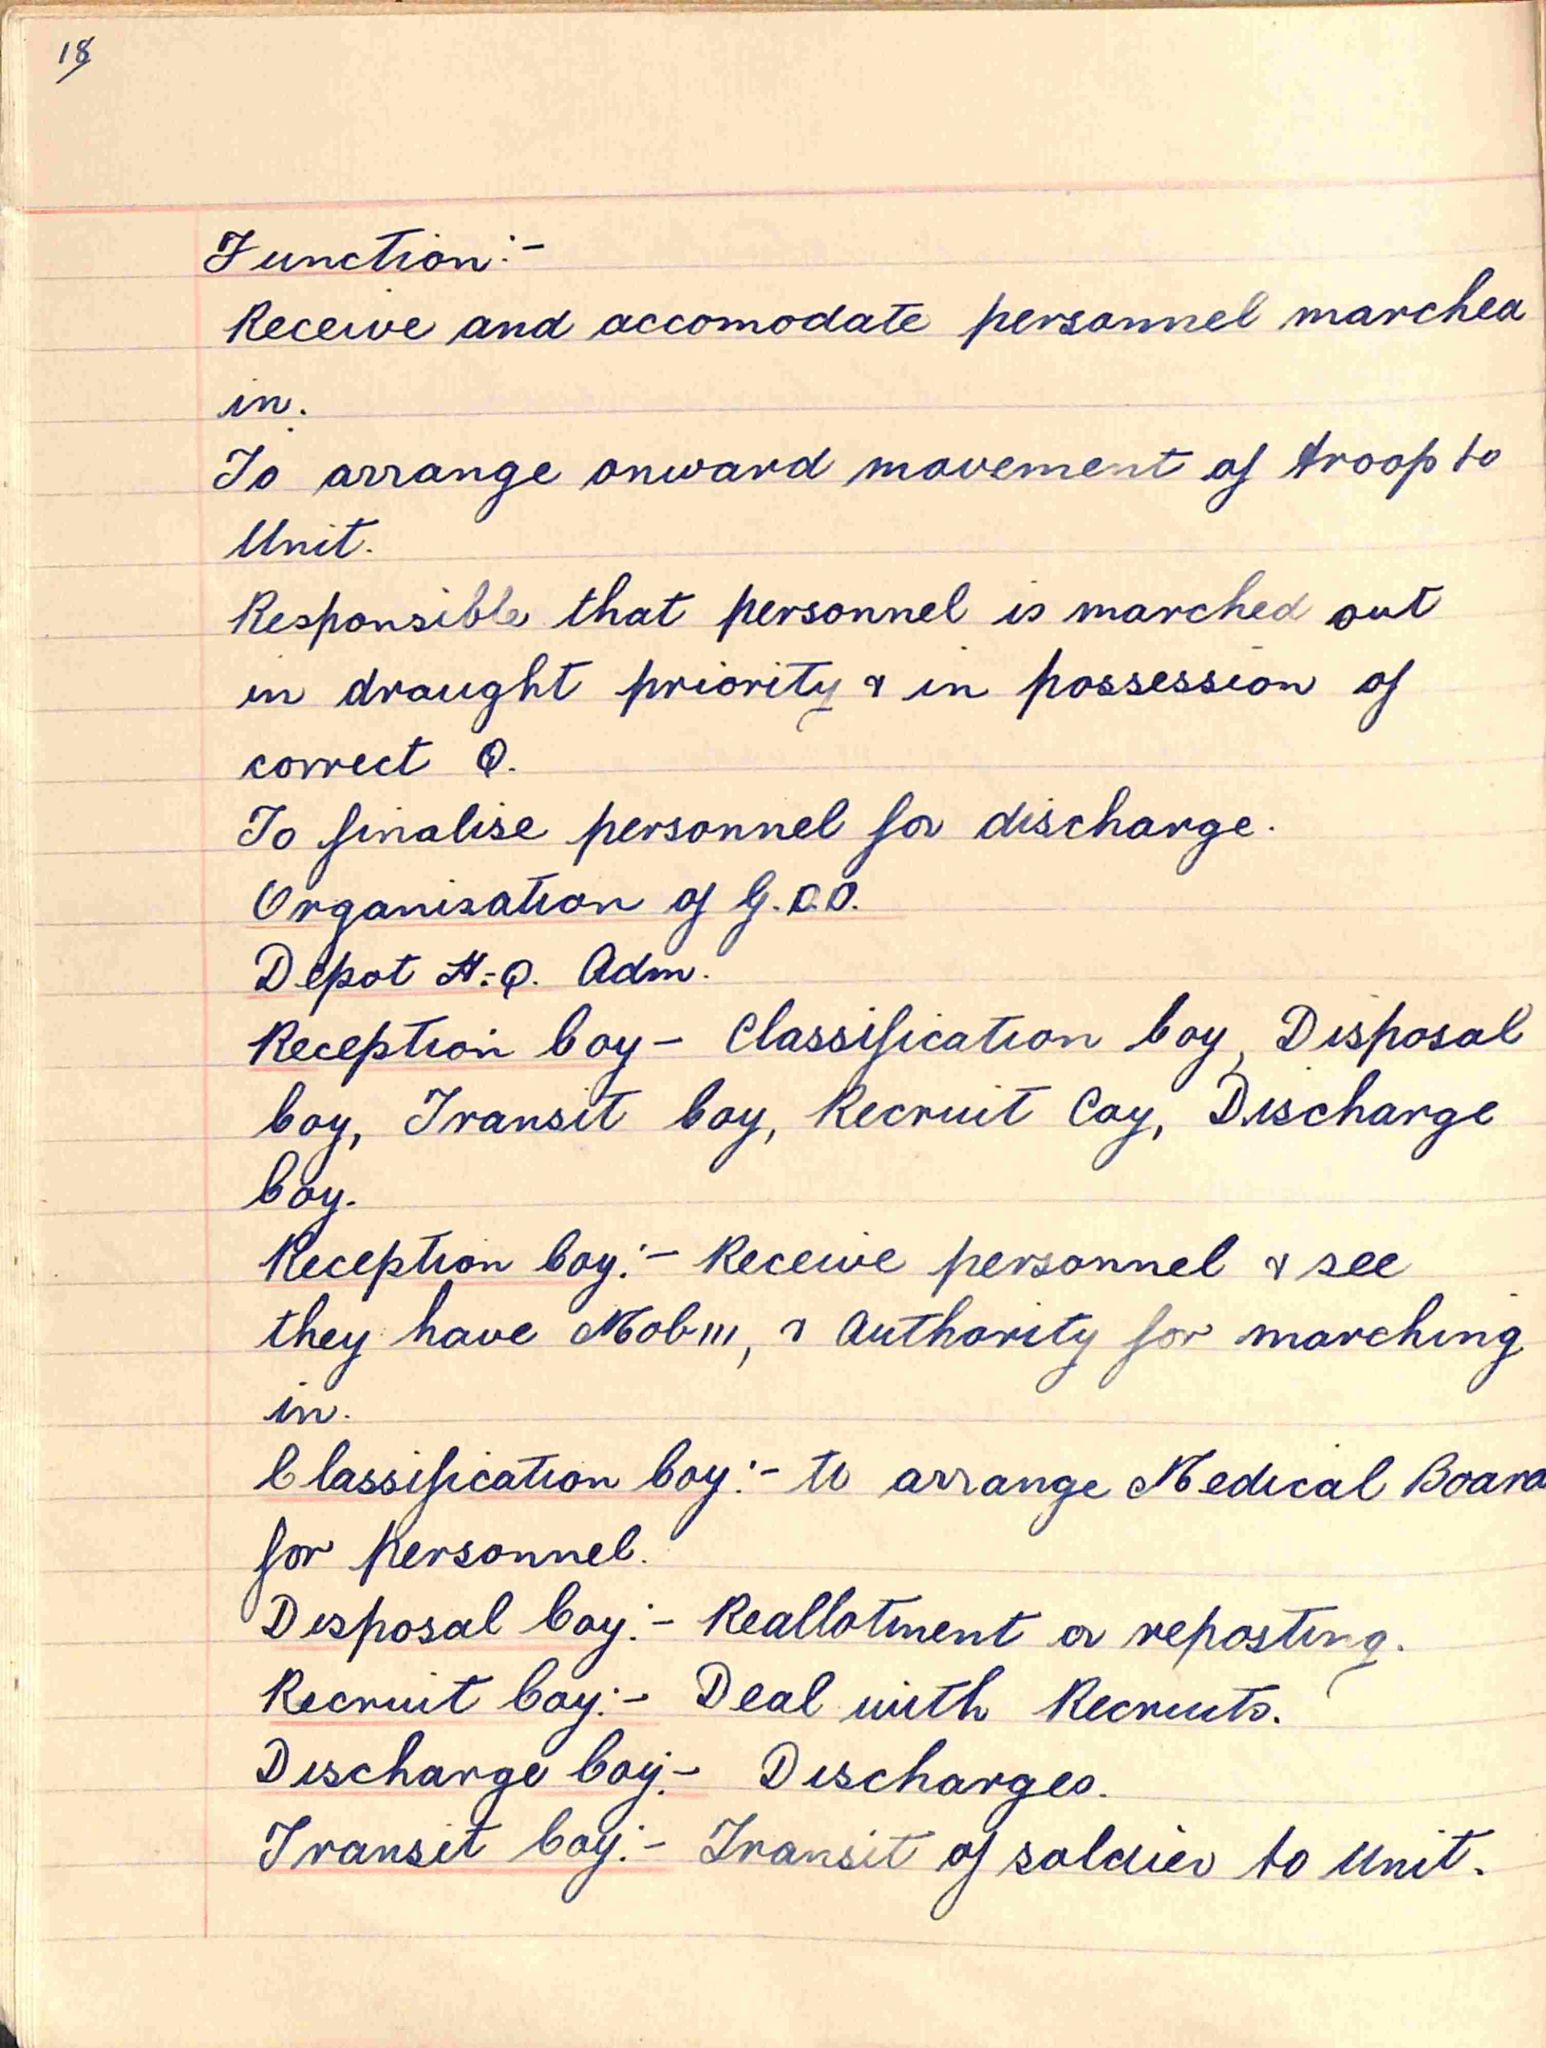 18
Function:-
Receive and accomodate personnel marched
in.
To arrange onward movement of troop to
Unit.
Responsible that personnel is marched out
in draught priority & in possession of
correct Q.
To finalise personnel for discharge.
Organisation of G.D.D.
Depot H.Q. Adm.
Reception Coy - Classification Coy, Disposal
Coy, Transit Coy, Recruit Coy, Discharge
Coy.
Reception Coy:- Receive personnel & see
they have Mob III, & Authority for marching
in.
Classification Coy:- to arrange Medical Board
for personnel.
Disposal Coy:- Reallotment or reposting.
Recruit Coy:- Deal with Recruits.
Discharge Coy:- Discharges.
Transit Coy:- Transit of soldier to Unit.